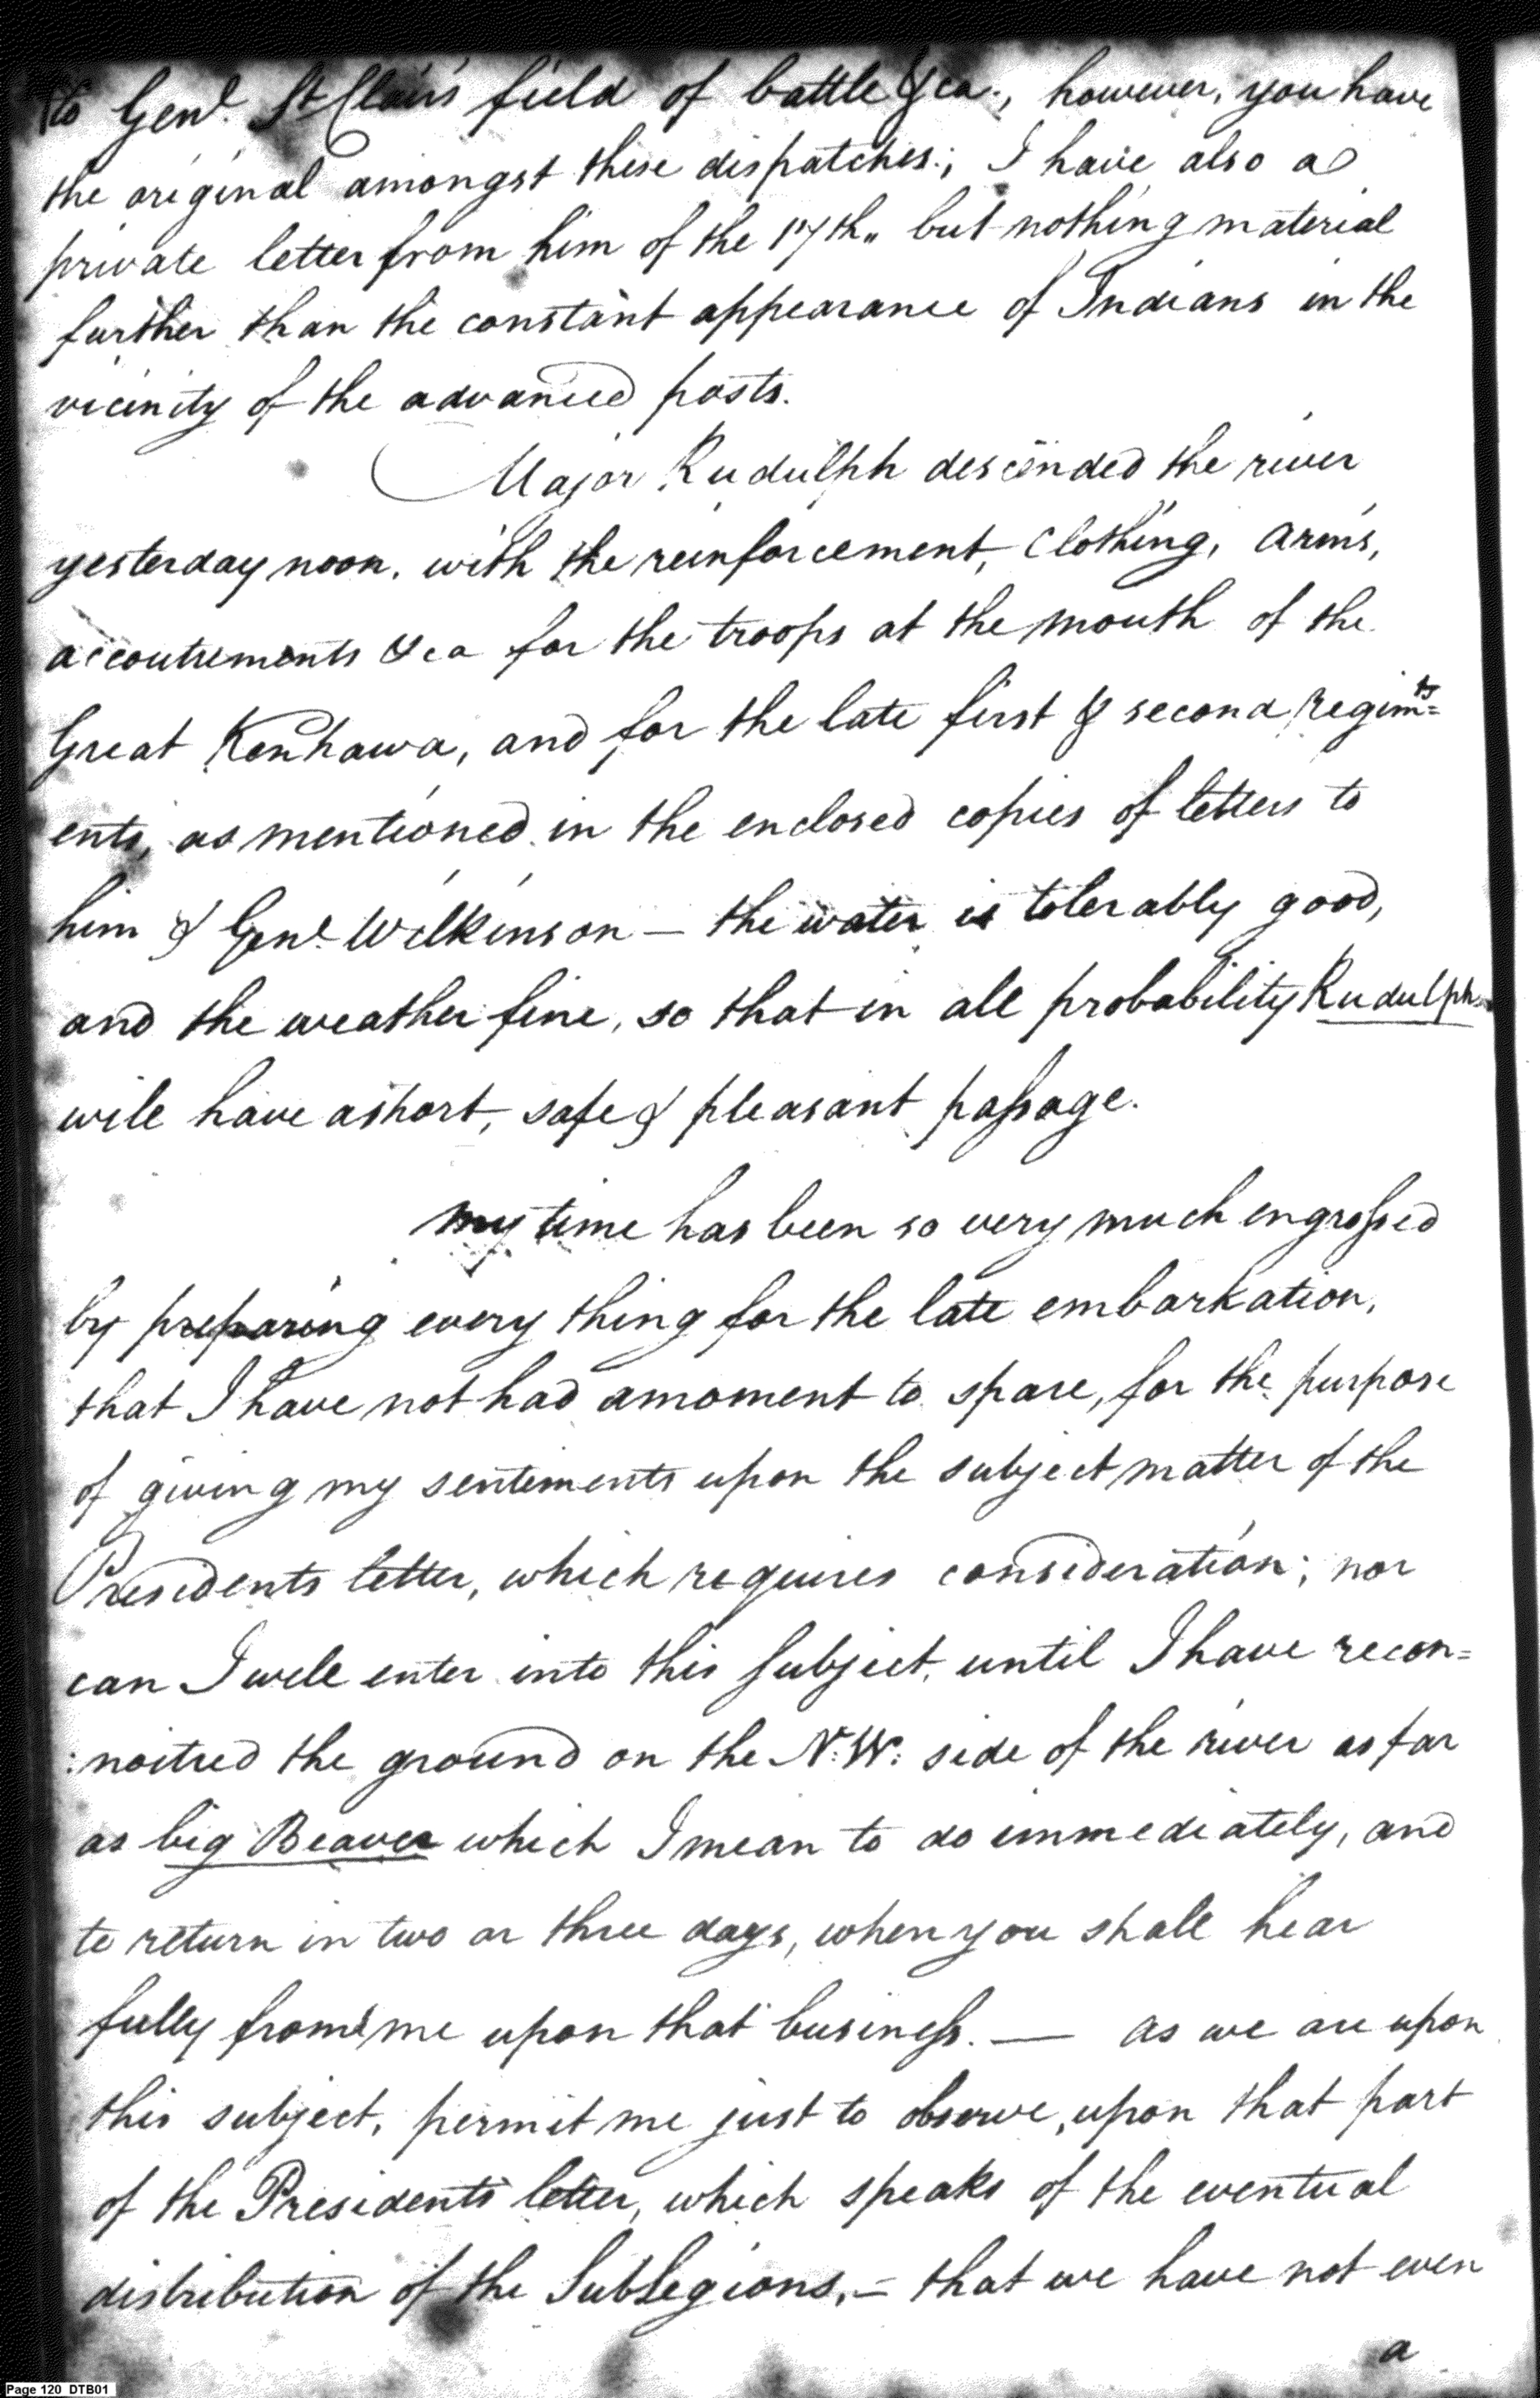 to Genl. St Clair's field of battle &ca., however, you have
the original amongst these dispatches; I have also a
private letter from him of the 17th„ but nothing material
further than the constant appearance of Indians in the
vicinity of the advanced posts.
Major Rudulph descended the river
yesterday noon, with the reinforcement, Clothing, arms,
accoutrements &ca for the troops at the mouth of the
Great Kenhawa, and for the late first & second regim=ts
ents, as mentioned in the enclosed copies of letters to
him & Genl. Wilkinson — the water is tolerably good,
and the weather fine, so that in all probability Rudulph
will have a short, safe & pleasant passage.
my time has been so very much engrossed
by preparing every thing for the late embarkation,
that I have not had a moment to spare, for the purpose
of giving my sentiments upon the subject matter of the
Presidents letter, which requires consideration; nor
can I well enter into this subject, until I have recon=
:noitred the ground on the N:W: side of the river as far
as big Beaver which I mean to do immediately, and
to return in two or three days, when you shall hear
fully from me upon that business. — as we are upon
this subject, permit me just to observe, upon that part
of the Presidents letter, which speaks of the eventual
distribution of the Sublegions, — that we have not even
a
Page 120 DTB01